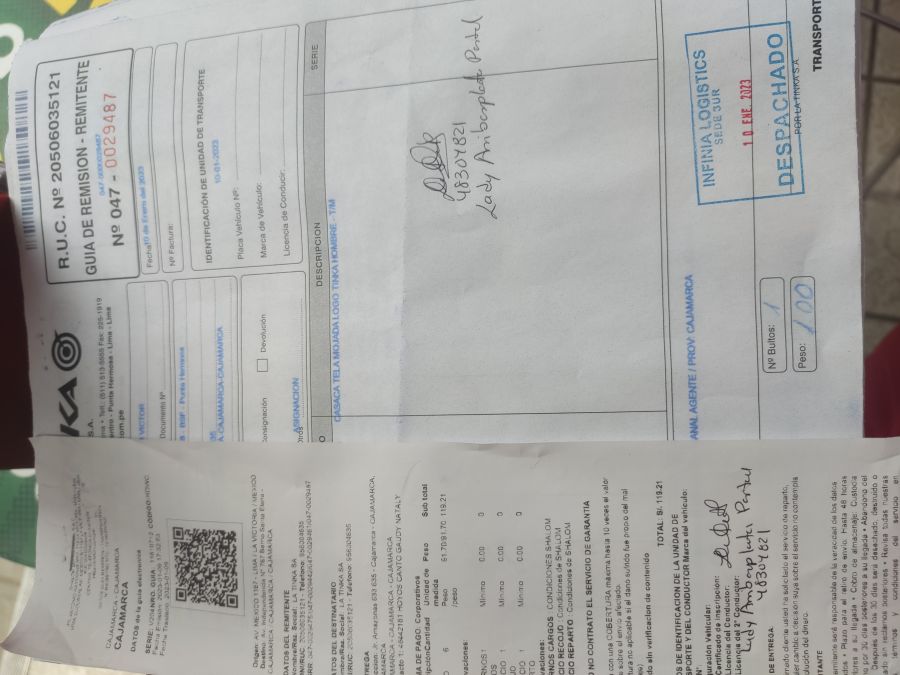 CAJAMARCA - CAJAMARCA
CAJAMARCA
DATOS de la guía electronica
Fecha Emisión: 2023-01-09 17:32:53
Fecha Traslado: 2023-01-09
Origen: AV. MEXICO 1187 - LIMA / LA VICTORIA / MEXICO
Destino: Av. Independencia N° 787 Barrio Santa Elena -
CAJAMARCA / CAJAMARCA / CAJAMARCA
DATOS DEL REMITENTE
Nombre/Raz. Social: LA TINKA SA
DNI/RUC: 20506035121 - Telefono: 956304635
ATOS DEL DESTINATARIO
mbre/Raz. Social: LA TINKA SA
NI/RUC: 20506035121 - Telefono: 956304635
TREGA
ccion: Jr. Amazonas 633 635 - Cajamarca - CAJAMARCA,
AMARCA
MARCA - CAJAMARCA - CAJAMARCA
acto 1: 46442181 HOYOS CANTO GAUDY NATALY
MA DE PAGO: Corporativos
ripciónCantidad Unidad de medida Peso Sub total
O 6 Peso /peso 91.70/91.70 119.21
vaciones:
RNOS 1 Mínimo 0.00 0
OS
CIO 1 Mínimo 0.00 0
JO
CIO 1 Mínimo 0.00 0
RTO
vaciones:
RNOS CARGOS : CONDICIONES SHALOM
CIO RECOJO : Condiciones de SHALOM
CIO REPARTO : Condiciones de SHALOM
O NO CONTRATO EL SERVICIO DE GARANTÍA
a con una COBERTURA máxima hasta 10 veces el valor
e sobre el envío afectado.
tura no aplicable si el daño sufrido fue propio del mal
do sin verificacion de contenido
TOTAL: S/. 119.21
OS DE IDENTIFICACION DE LA UNIDAD DE
SPORTE Y DEL CONDUCTOR Marca del vehículo:
N°:
guración Vehicular:
Certificado de inscripción:
Licencia del Conductor:
Licencia del 2° Conductor:
Lady Aribasplata Portal
48304821
DE ENTREGA.
mado cliente usted ha solicitado el servicio de reparto,
ier cambio a decisión suya sobre el servicio no contempla
olución del dinero.
TANTE
emitente será responsable de la veracidad de los datos
ados • Plazo para el retiro de envío: Hasta 48 horas
riores a su llegada • Cobro de almacenaje: Custodia
no por 30 días posteriores a su llegada • Abandono del
Después de los 30 días será desechado, destruido o
ado sin reclamos posteriores • Revisa todas nuestras
términos y condiciones del servicio en
NKA
S.A.
ma • Telf.: (511) 513-5555 Fax: 225-1919
entro - Punta Hermosa - Lima - Lima
com.pe
R.U.C. Nº 20506035121
GUIA DE REMISION - REMITENTE
047-0000029487
Nº 047 - 0029487
VICTOR
Documento Nº
B - BSF - Punta Hermosa
A-CAJAMARCA-CAJAMARCA
Fecha 10 de Enero del 2023
Nº Factura:
IDENTIFICACIÓN DE UNIDAD DE TRANSPORTE
10-01-2023
Placa Vehículo Nº:
Marca de Vehículo:
Licencia de Conducir:
onsignación Devolución
Otros ASIGNACION
O DESCRIPCION SERIE
CASACA TELA MOJADA LOGO TINKA HOMBRE - T/M
48304821
Lady Aribasplata Portal
ANAL AGENTE / PROV: CAJAMARCA
INFINIA LOGISTICS
SEDE SUR
10 ENE. 2023
DESPACHADO
POR LA TINKA S.A.
Nº Bultos: 1
Peso: 1.00
TRANSPORT